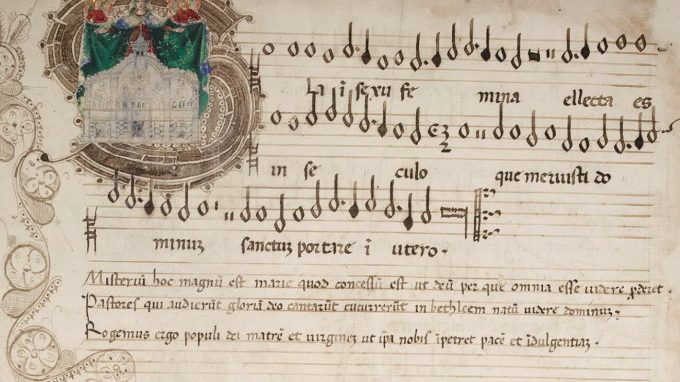 La ī sexu fe mina ellecta es
in se culo que meruisti do
minuz sanctuz portare ī utero.
Misteriū hoc magnū est marie quod concessū est ut deū per quē omnia esse videre
Pastores qui audierūt gloriā deo cantarūt cucurrerūt in bethleem natū videre dominuz.
Rogemus ergo populi dei matrē et virginez ut ip̄a nobis īpetret pacē et īdulgentiaz.